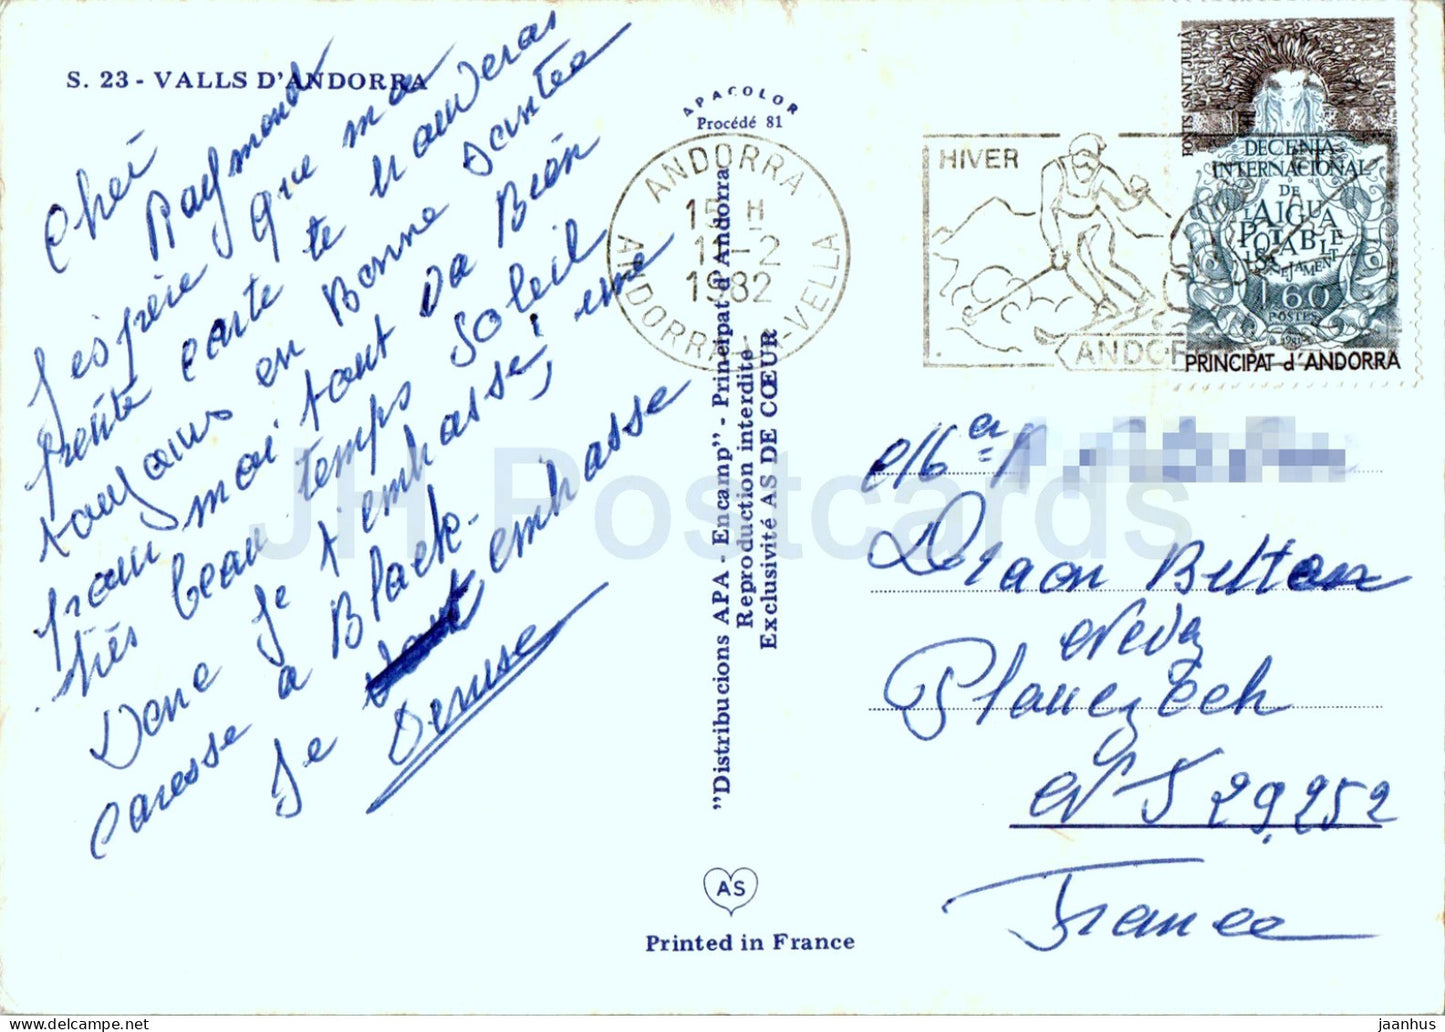 S. 23 - VALLS D'ANDORRA
Cher
Raymond
J'espère que ma
petite carte te trouveras
toujours en Bonne Santée
pour moi tout va Bien
très beau temps Soleil
Donc je t'embrasse, une
caresse a Black.
Je t'embrasse
Denise
APACOLOR
Procédé 81
"Distribucions APA - Encamp" - Principat d'Andorra
Reproduction interdite
Exclusivité AS DE CŒUR
AS
Printed in France
ANDORRA
15 H
11-2
1982
ANDORRA-LA-VELLA
HIVER
ANDOR
FONTS SANT JULIÀ
DECENIA
INTERNACIONAL
DE
L'AIGUA
POTABLE
I SANEJAMENT
1,60
POSTES
1981
PRINCIPAT d'ANDORRA
Kreden
Plouezoch
N° 29.252
France
JH Postcards
JH Postcards
jaanhus @ delcampe.net